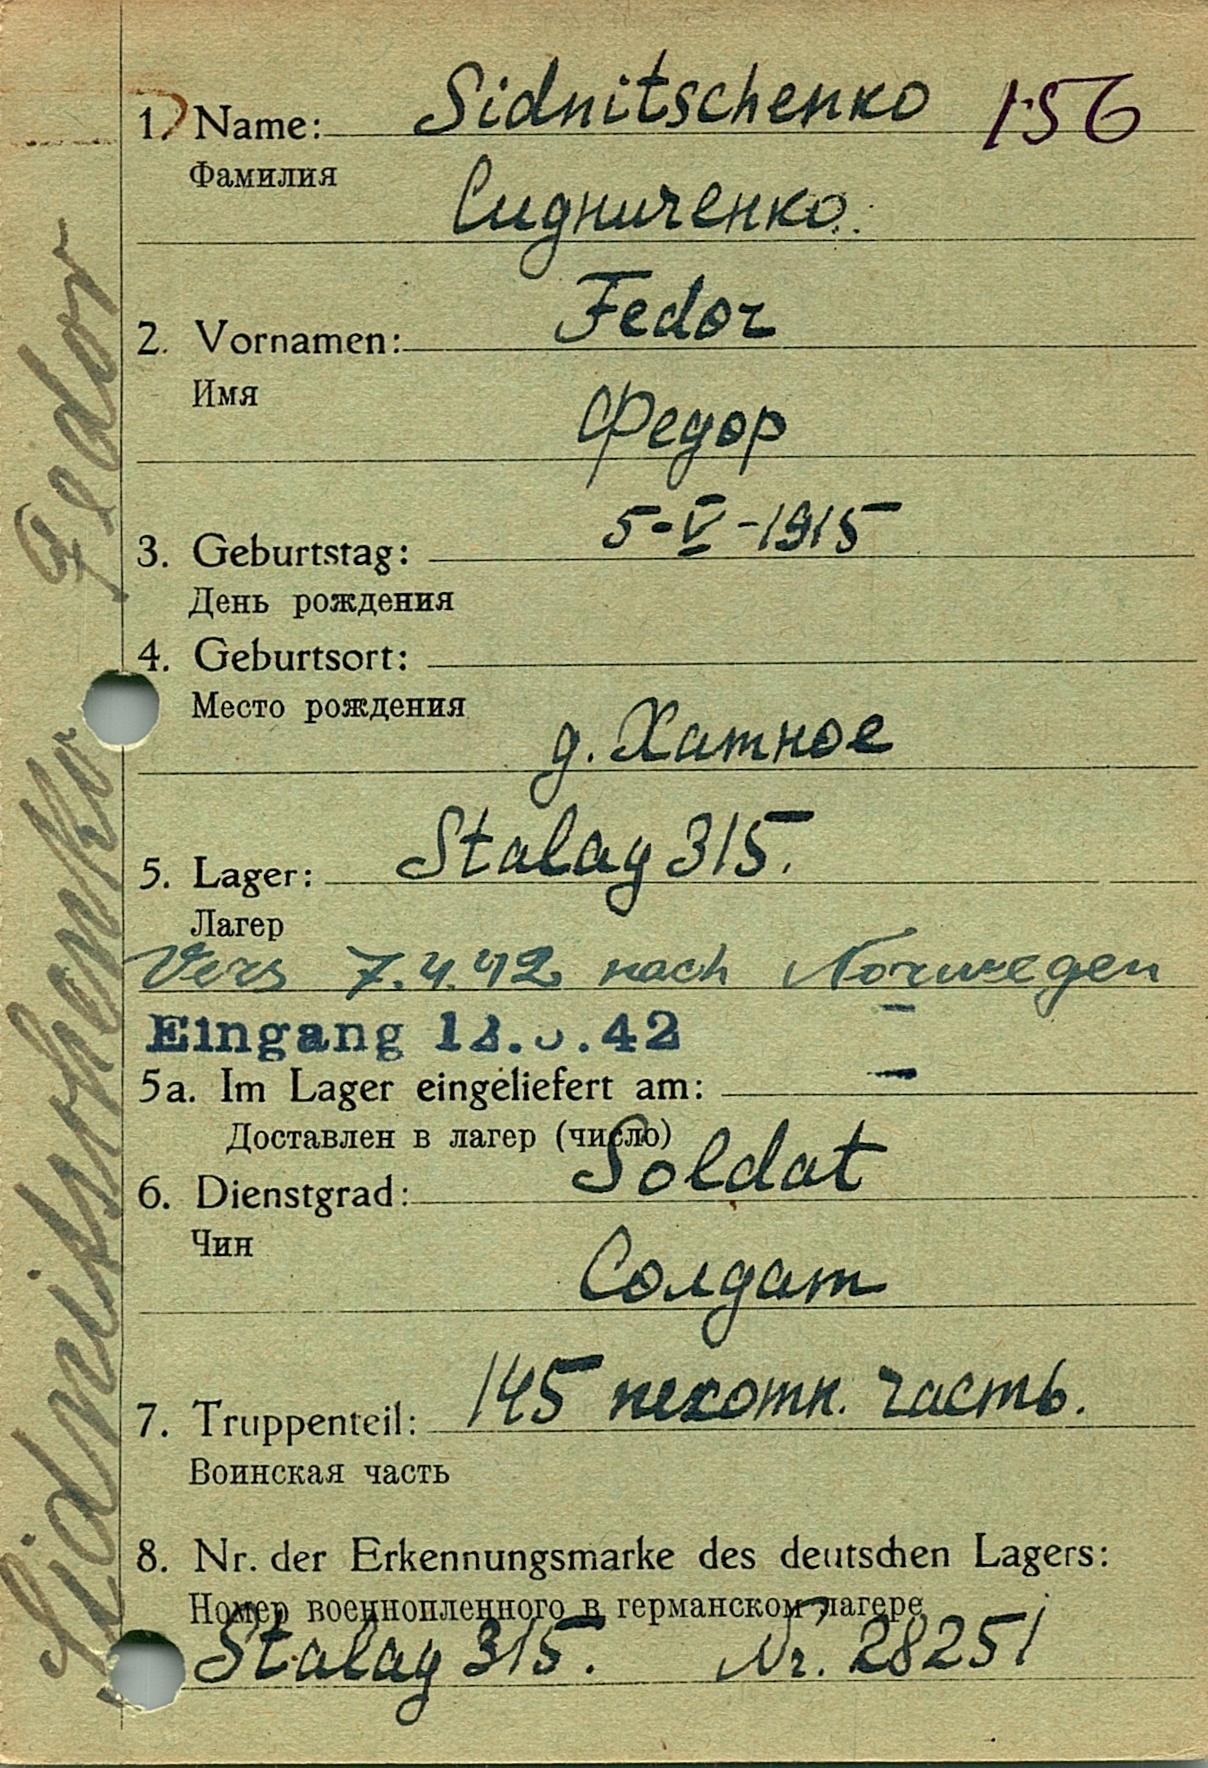 1) Name: Sidnitschenko 156
Фамилия
Сидниченко.
2. Vornamen: Fedor
Имя
Федор
3. Geburtstag: 5-V-1915
День рождения
4. Geburtsort:
Место рождения
д. Хатное
5. Lager: Stalag 315.
Лагер
Vers 7.4.42 nach Norwegen
Eingang .42
5a. Im Lager eingeliefert am:
Доставлен в лагер (число)
6. Dienstgrad: Soldat
Чин
Солдат
7. Truppenteil: 145 пехотн. часть.
Воинская часть
8. Nr. der Erkennungsmarke des deutschen Lagers:
Номер военнопленного в германском лагере
Stalag 315. Nr. 28251
Sidnisschenko Fedor